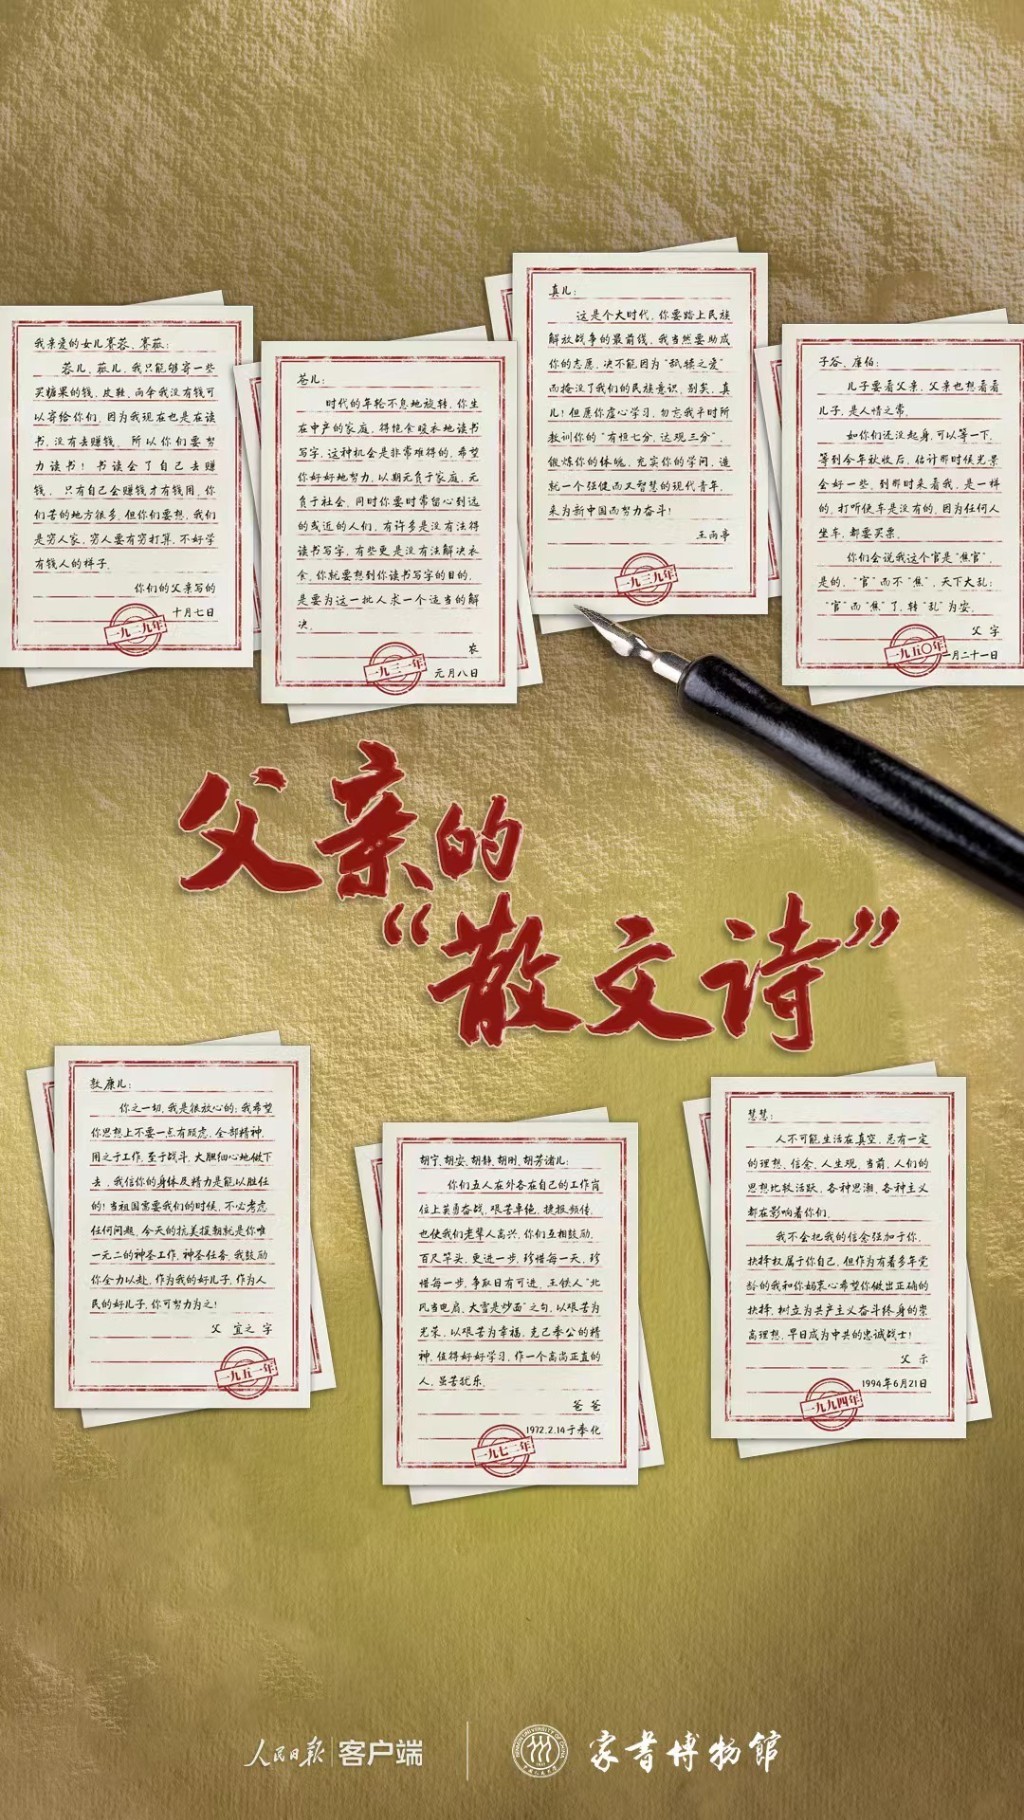 我亲爱的女儿赛蓉、赛薇:
蓉儿、薇儿,我只能够寄一些
买糖果的钱,皮鞋、雨伞我没有钱可
以寄给你们,因为我现在也是在读
书,没有去赚钱。所以你们要努
力读书!书读会了自己去赚
钱。只有自己会赚钱才有钱用,你
们苦的地方很多,但你们要想,我们
是穷人家,穷人要有穷打算,不好学
有钱人的样子。
你们的父亲写的
十月七日
一九二九年
苍儿:
时代的年轮不息地旋转,你生
在中产的家庭,得饱食暖衣地读书
写字,这种机会是非常难得的,希望
你好好地努力,以期无负于家庭,无
负于社会,同时你要时常留心到远
的或近的人们,有许多是没有法得
读书写字,有些更是没有法解决衣
食,你就要想到你读书写字的目的,
是要为这一批人求一个适当的解
决。
农
元月八日
一九三一年
真儿:
这是个大时代,你要踏上民族
解放战争的最前线,我当然要助成
你的志愿,决不能因为“舐犊之爱”
而掩没了我们的民族意识。别矣,真
儿!但愿你虚心学习,勿忘我平时所
教训你的“有恒七分,达观三分”,
锻炼你的体魄,充实你的学问,造
就一个强健而又智慧的现代青年,
来为新中国而努力奋斗!
王雨亭
一九三九年
子谷、廉伯:
儿子要看父亲,父亲也想看看
儿子,是人情之常。
如你们还没起身,可以等一下,
等到今年秋收后,估计那时候光景
会好一些,到那时来看我,是一样
的。打听便车是没有的,因为任何人
坐车,都要买票。
你们会说我这个官是“焦官”,
是的,“官”而不“焦”,天下大乱;
“官”而“焦”了,转“乱”为安。
父 字
二月二十一日
一九五〇年
父亲的
“散文诗”
敦康儿:
你之一切,我是很放心的;我希望
你思想上不要一点有顾虑,全部精神,
用之于工作,至于战斗,大胆细心地做下
去,我信你的身体及精力是能以胜任
的!当祖国需要我们的时候,不必考虑
任何问题,今天的抗美援朝就是你唯
一无二的神圣工作,神圣任务,我鼓励
你全力以赴,作为我的好儿子,作为人
民的好儿子,你可努力为之!
父 宜之 字
一九五一年
胡宁、胡安、胡静、胡刚、胡芳诸儿:
你们五人在外各在自己的工作岗
位上英勇奋战,艰苦卓绝,捷报频传,
也使我们老辈人高兴,你们互相鼓励,
百尺竿头,更进一步,珍惜每一天,珍
惜每一步,争取日有可进。王铁人“北
风当电扇,大雪是炒面”之句,以艰苦为
光荣,以艰苦为幸福,克己奉公的精
神,值得好好学习,作一个高尚正直的
人,虽苦犹乐。
爸 爸
1972.2.14于奉化
一九七二年
慧慧:
人不可能生活在真空,总有一定
的理想、信念、人生观。当前,人们的
思想比较活跃,各种思潮、各种主义
都在影响着你们。
我不会把我的信念强加于你,
抉择权属于你自己,但作为有着多年党
龄的我和你妈衷心希望你做出正确的
抉择,树立为共产主义奋斗终身的崇
高理想,早日成为中共的忠诚战士!
父 示
1994年6月21日
一九九四年
人民日报 客户端
家书博物馆